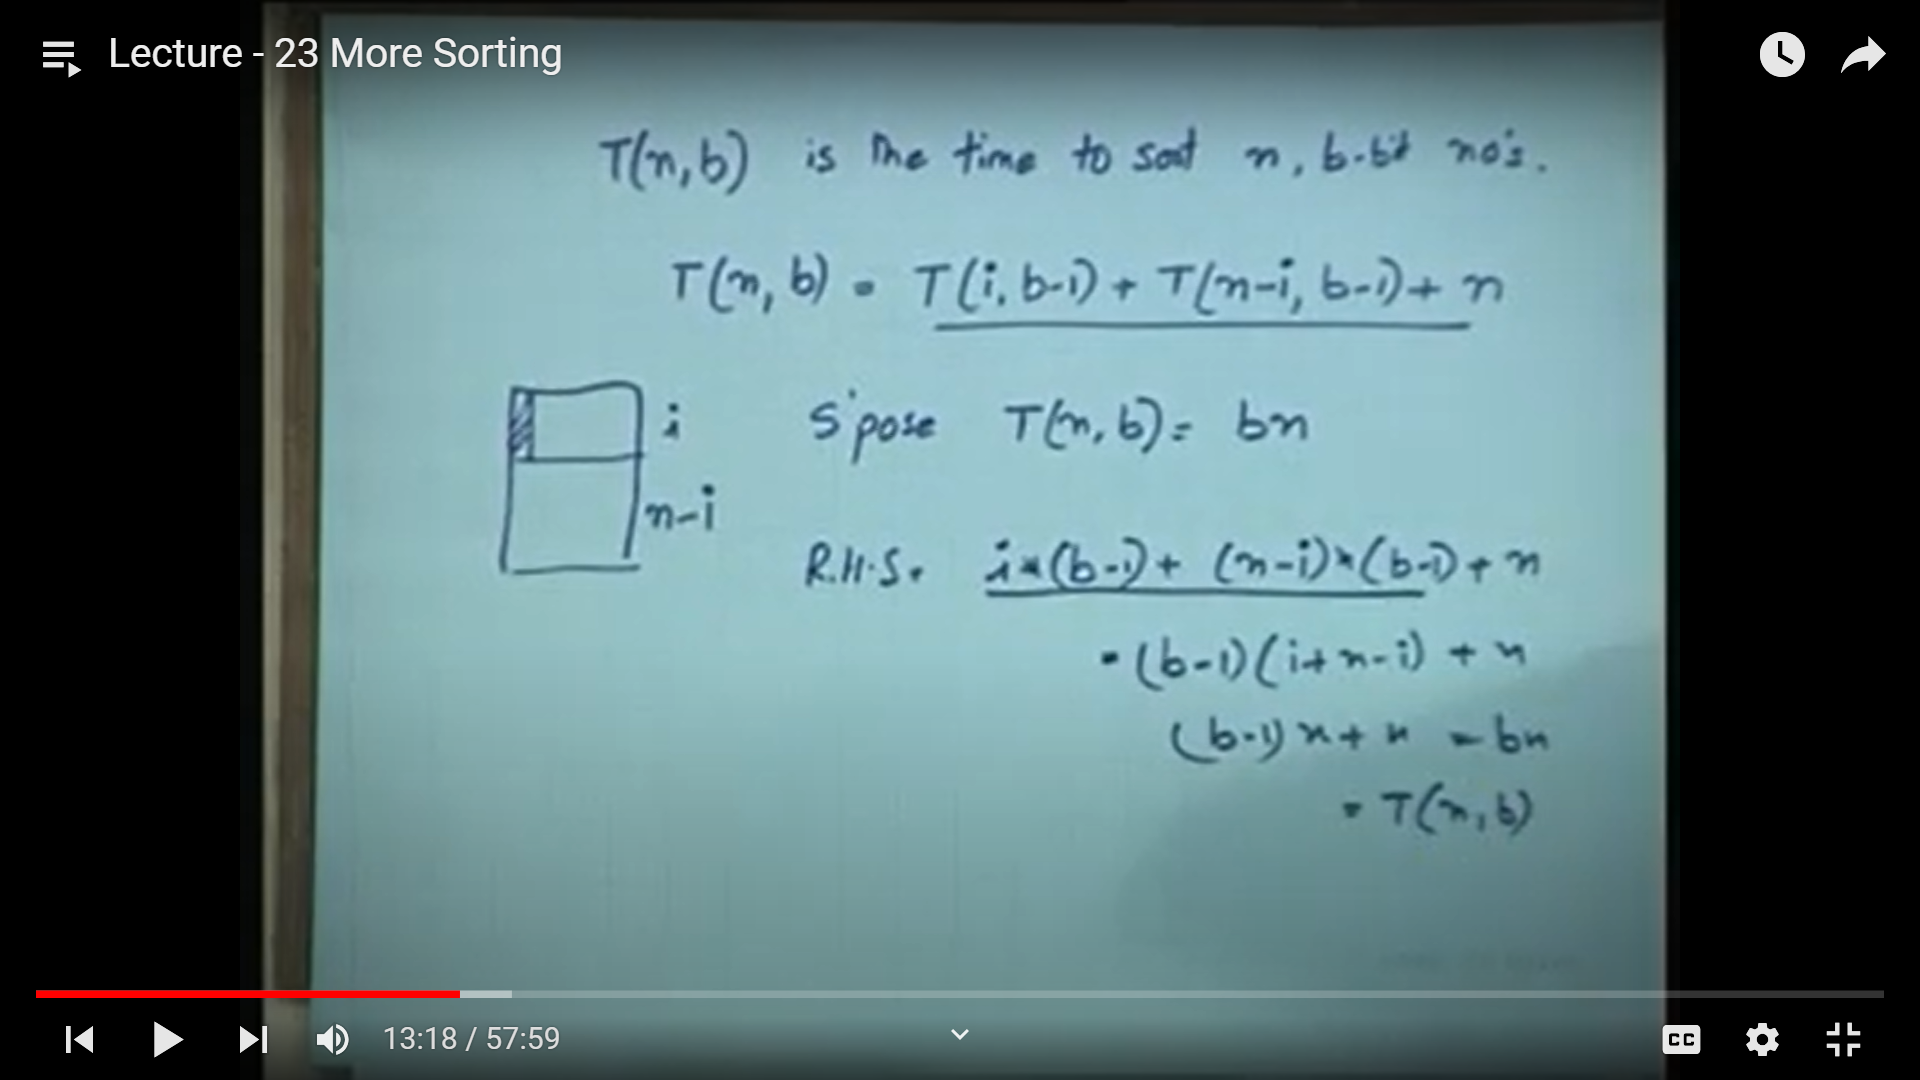 Lecture - 23 More Sorting
T(n,b) is the time to sort n, b-bit no's.
T(n, b) = T(i, b-1) + T(n-i, b-1) + n
i
n-i
S'pose T(n, b) = bn
R.H.S. i*(b-1) + (n-i)*(b-1) + n
= (b-1)(i+n-i) + n
(b-1) n + n = bn
= T(n, b)
13:18 / 57:59
CC